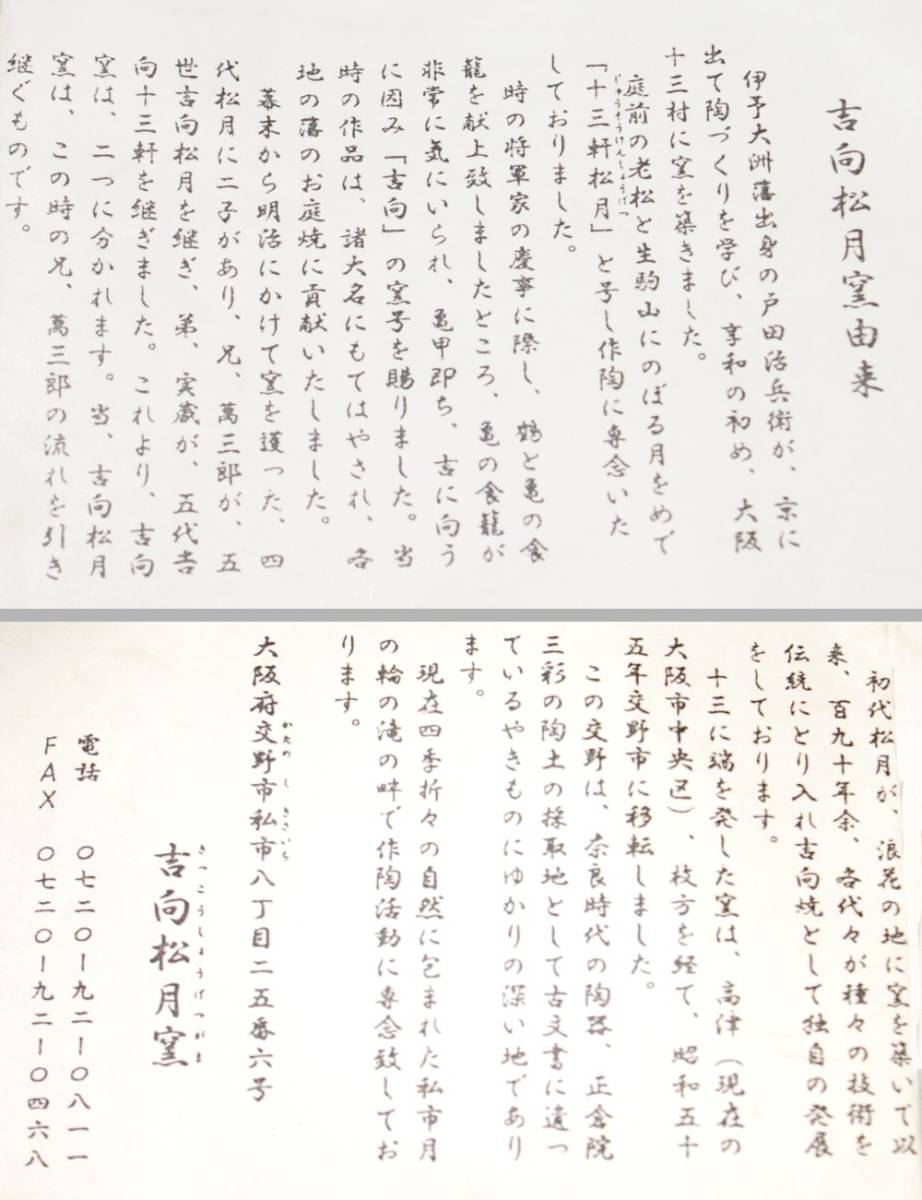 吉向松月窯由来
伊予大洲藩出身の戸田治兵衛が、京に
出て陶づくりを学び、享和の初め、大阪
十三村に窯を築きました。
庭前の老松と生駒山にのぼる月をめで
「十三軒松月」と号し作陶に専念いた
じゅうそうけんしょうげつ
しておりました。
時の将軍家の慶事に際し、鶴と亀の食
籠を献上致しましたところ、亀の食籠が
非常に気にいられ、亀甲即ち、吉に向う
に因み「吉向」の窯号を賜りました。当
時の作品は、諸大名にもてはやされ、各
地の藩のお庭焼に貢献いたしました。
幕末から明治にかけて窯を護った、四
代松月に二子があり、兄、萬三郎が、五
世吉向松月を継ぎ、弟、実蔵が、五代吉
向十三軒を継ぎました。これより、吉向
窯は、二つに分かれます。当、吉向松月
窯は、この時の兄、萬三郎の流れを引き
継ぐものです。
初代松月が、浪花の地に窯を築いて以
来、百九十年余、各代々が種々の技術を
伝統にとり入れ吉向焼として独自の発展
をしております。
十三に端を発した窯は、高津(現在の
大阪市中央区)、枚方を経て、昭和五十
五年交野市に移転しました。
この交野は、奈良時代の陶器、正倉院
三彩の陶土の採取地として古文書に遺っ
ているやきものにゆかりの深い地であり
ます。
現在四季折々の自然に包まれた私市月
の輪の滝の畔で作陶活動に専念致してお
ります。
大阪府交野市私市八丁目二五番六号
かたの し きさいち
吉向松月窯
きっこうしょうげつがま
電話 〇七二〇ー九二ー〇八一一
FAX 〇七二〇ー九二ー〇四六八